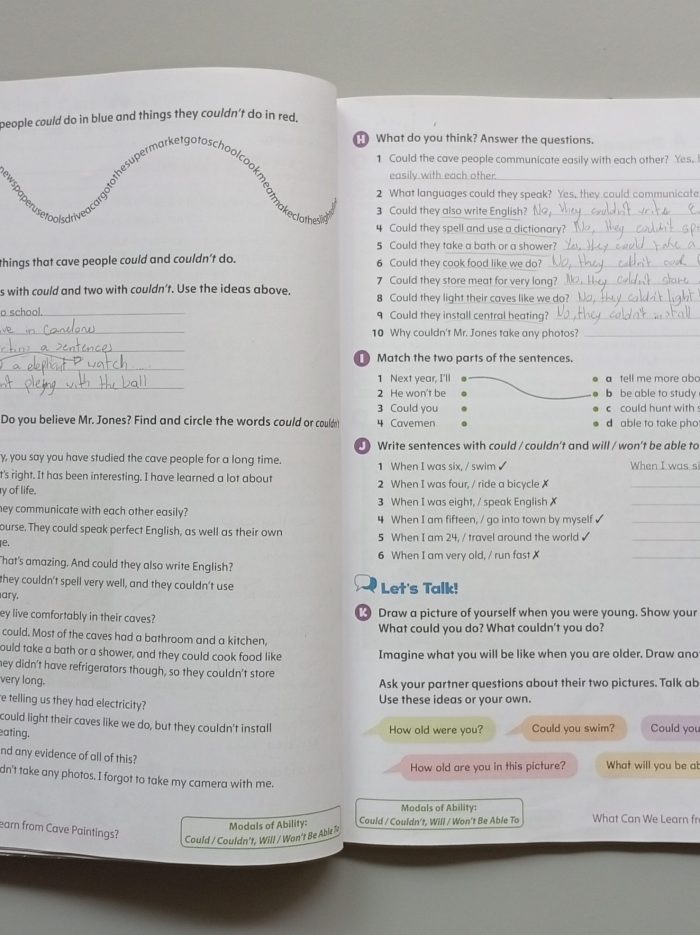 people could do in blue and things they couldn't do in red.
newspaperusetoolsdriveacargotothesupermarketgotoschoolcookmeatmakeclotheslight
things that cave people could and couldn't do.
s with could and two with couldn't. Use the ideas above.
o school.
ve in
a sentence
a elephant watch
with the ball
Do you believe Mr. Jones? Find and circle the words could or couldn't
y, you say you have studied the cave people for a long time.
t's right. It has been interesting. I have learned a lot about
y of life.
hey communicate with each other easily?
ourse. They could speak perfect English, as well as their own
ge.
That's amazing. And could they also write English?
they couldn't spell very well, and they couldn't use
ary.
ey live comfortably in their caves?
could. Most of the caves had a bathroom and a kitchen,
ould take a bath or a shower, and they could cook food like
hey didn't have refrigerators though, so they couldn't store
very long.
re telling us they had electricity?
could light their caves like we do, but they couldn't install
eating.
nd any evidence of all of this?
dn't take any photos. I forgot to take my camera with me.
earn from Cave Paintings?
Modals of Ability:
Could / Couldn't, Will / Won't Be Able To
H What do you think? Answer the questions.
1 Could the cave people communicate easily with each other? Yes,
easily with each other.
2 What languages could they speak? Yes, they could communicate
3 Could they also write English? No, they couldn't write
4 Could they spell and use a dictionary? No, they couldn't sp
5 Could they take a bath or a shower? Yes, they could take a
6 Could they cook food like we do? No, they couldn't cook
7 Could they store meat for very long? No, they couldn't store
8 Could they light their caves like we do? No, they couldn't light
9 Could they install central heating? No, they couldn't install
10 Why couldn't Mr. Jones take any photos?
I Match the two parts of the sentences.
1 Next year, I'll a tell me more abo
2 He won't be b be able to study
3 Could you c could hunt with s
4 Cavemen d able to take pho
J Write sentences with could / couldn't and will / won't be able to
1 When I was six, / swim ✓ When I was si
2 When I was four, / ride a bicycle ✗
3 When I was eight, / speak English ✗
4 When I am fifteen, / go into town by myself ✓
5 When I am 24, / travel around the world ✓
6 When I am very old, / run fast ✗
Let's Talk!
K Draw a picture of yourself when you were young. Show your
What could you do? What couldn't you do?
Imagine what you will be like when you are older. Draw ano
Ask your partner questions about their two pictures. Talk ab
Use these ideas or your own.
How old were you? Could you swim? Could you
How old are you in this picture? What will you be ab
Modals of Ability:
Could / Couldn't, Will / Won't Be Able To
What Can We Learn fr